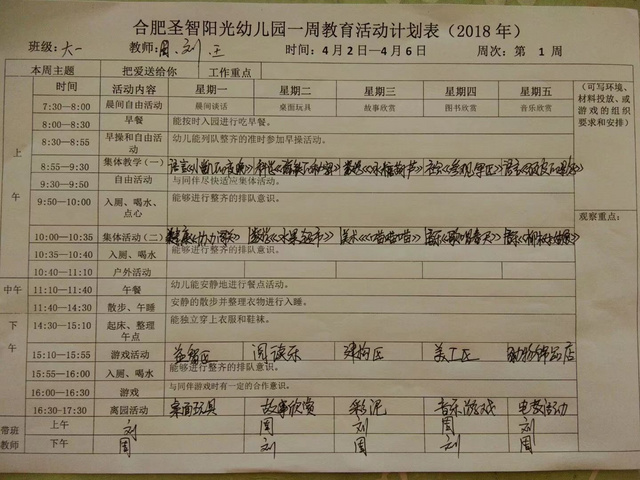 合肥圣智阳光幼儿园一周教育活动计划表（2018 年）
班级：大一 教师：周、刘、王 时间：4 月 2 日—4 月 6 日 周次：第 1 周
本周主题 把爱送给你 工作重点
时间 活动内容 星期一 星期二 星期三 星期四 星期五 （可写环境、材料投放、或游戏的组织要求和安排）
上午
7:30—8:00 晨间自由活动 晨间谈话 桌面玩具 故事欣赏 图书欣赏 音乐欣赏
8:00—8:30 早餐 能按时入园进行吃早餐。
8:30—8:55 早操和自由活动 幼儿能列队整齐的准时参加早操活动。
8:55—9:30 集体教学（一） 语言
9:30—9:50 自由活动 与同伴尽快适应集体活动。
9:50—10:00 入厕、喝水、点心 能够进行整齐的排队意识。
观察重点：
10:00—10:35 集体活动（二） 健康 数学《水果超市》 美术《喵喵喵》 音乐《歌唱春天》 音乐
10:35—10:40 入厕、喝水 能够进行整齐的排队意识。
10:40—11:10 户外活动
中午
11:10—11:40 午餐 幼儿能安静地进行餐点活动。
11:40—14:30 散步、午睡 安静的散步并整理衣物进行入睡。
下午
14:30—15:10 起床、整理午点 能独立穿上衣服和鞋袜。
15:10—15:55 游戏活动 益智区 阅读乐 建构区 美工区 饰品店
15:55—16:00 入厕、喝水 能够进行整齐的排队意识。
16:00—16:30 游戏 与同伴游戏时有一定的合作意识。
16:30-17:30 离园活动 桌面玩具 故事欣赏 彩泥 音乐游戏 电教活动
带班教师 上午 刘 周 刘 周 刘
下午 周 刘 周 刘 周